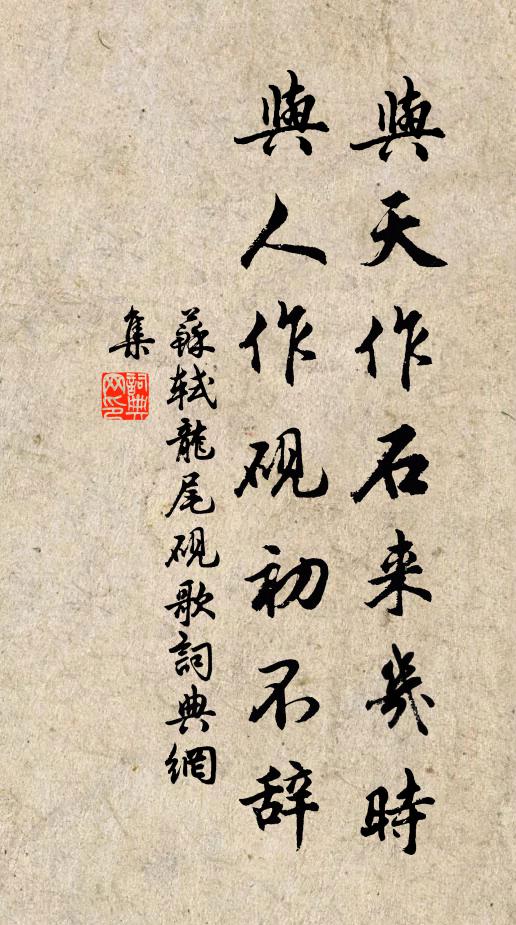 與天作石来幾時
與人作硯初不辞
蘇轼龍尾硯歌詞典網
集
詞典网印